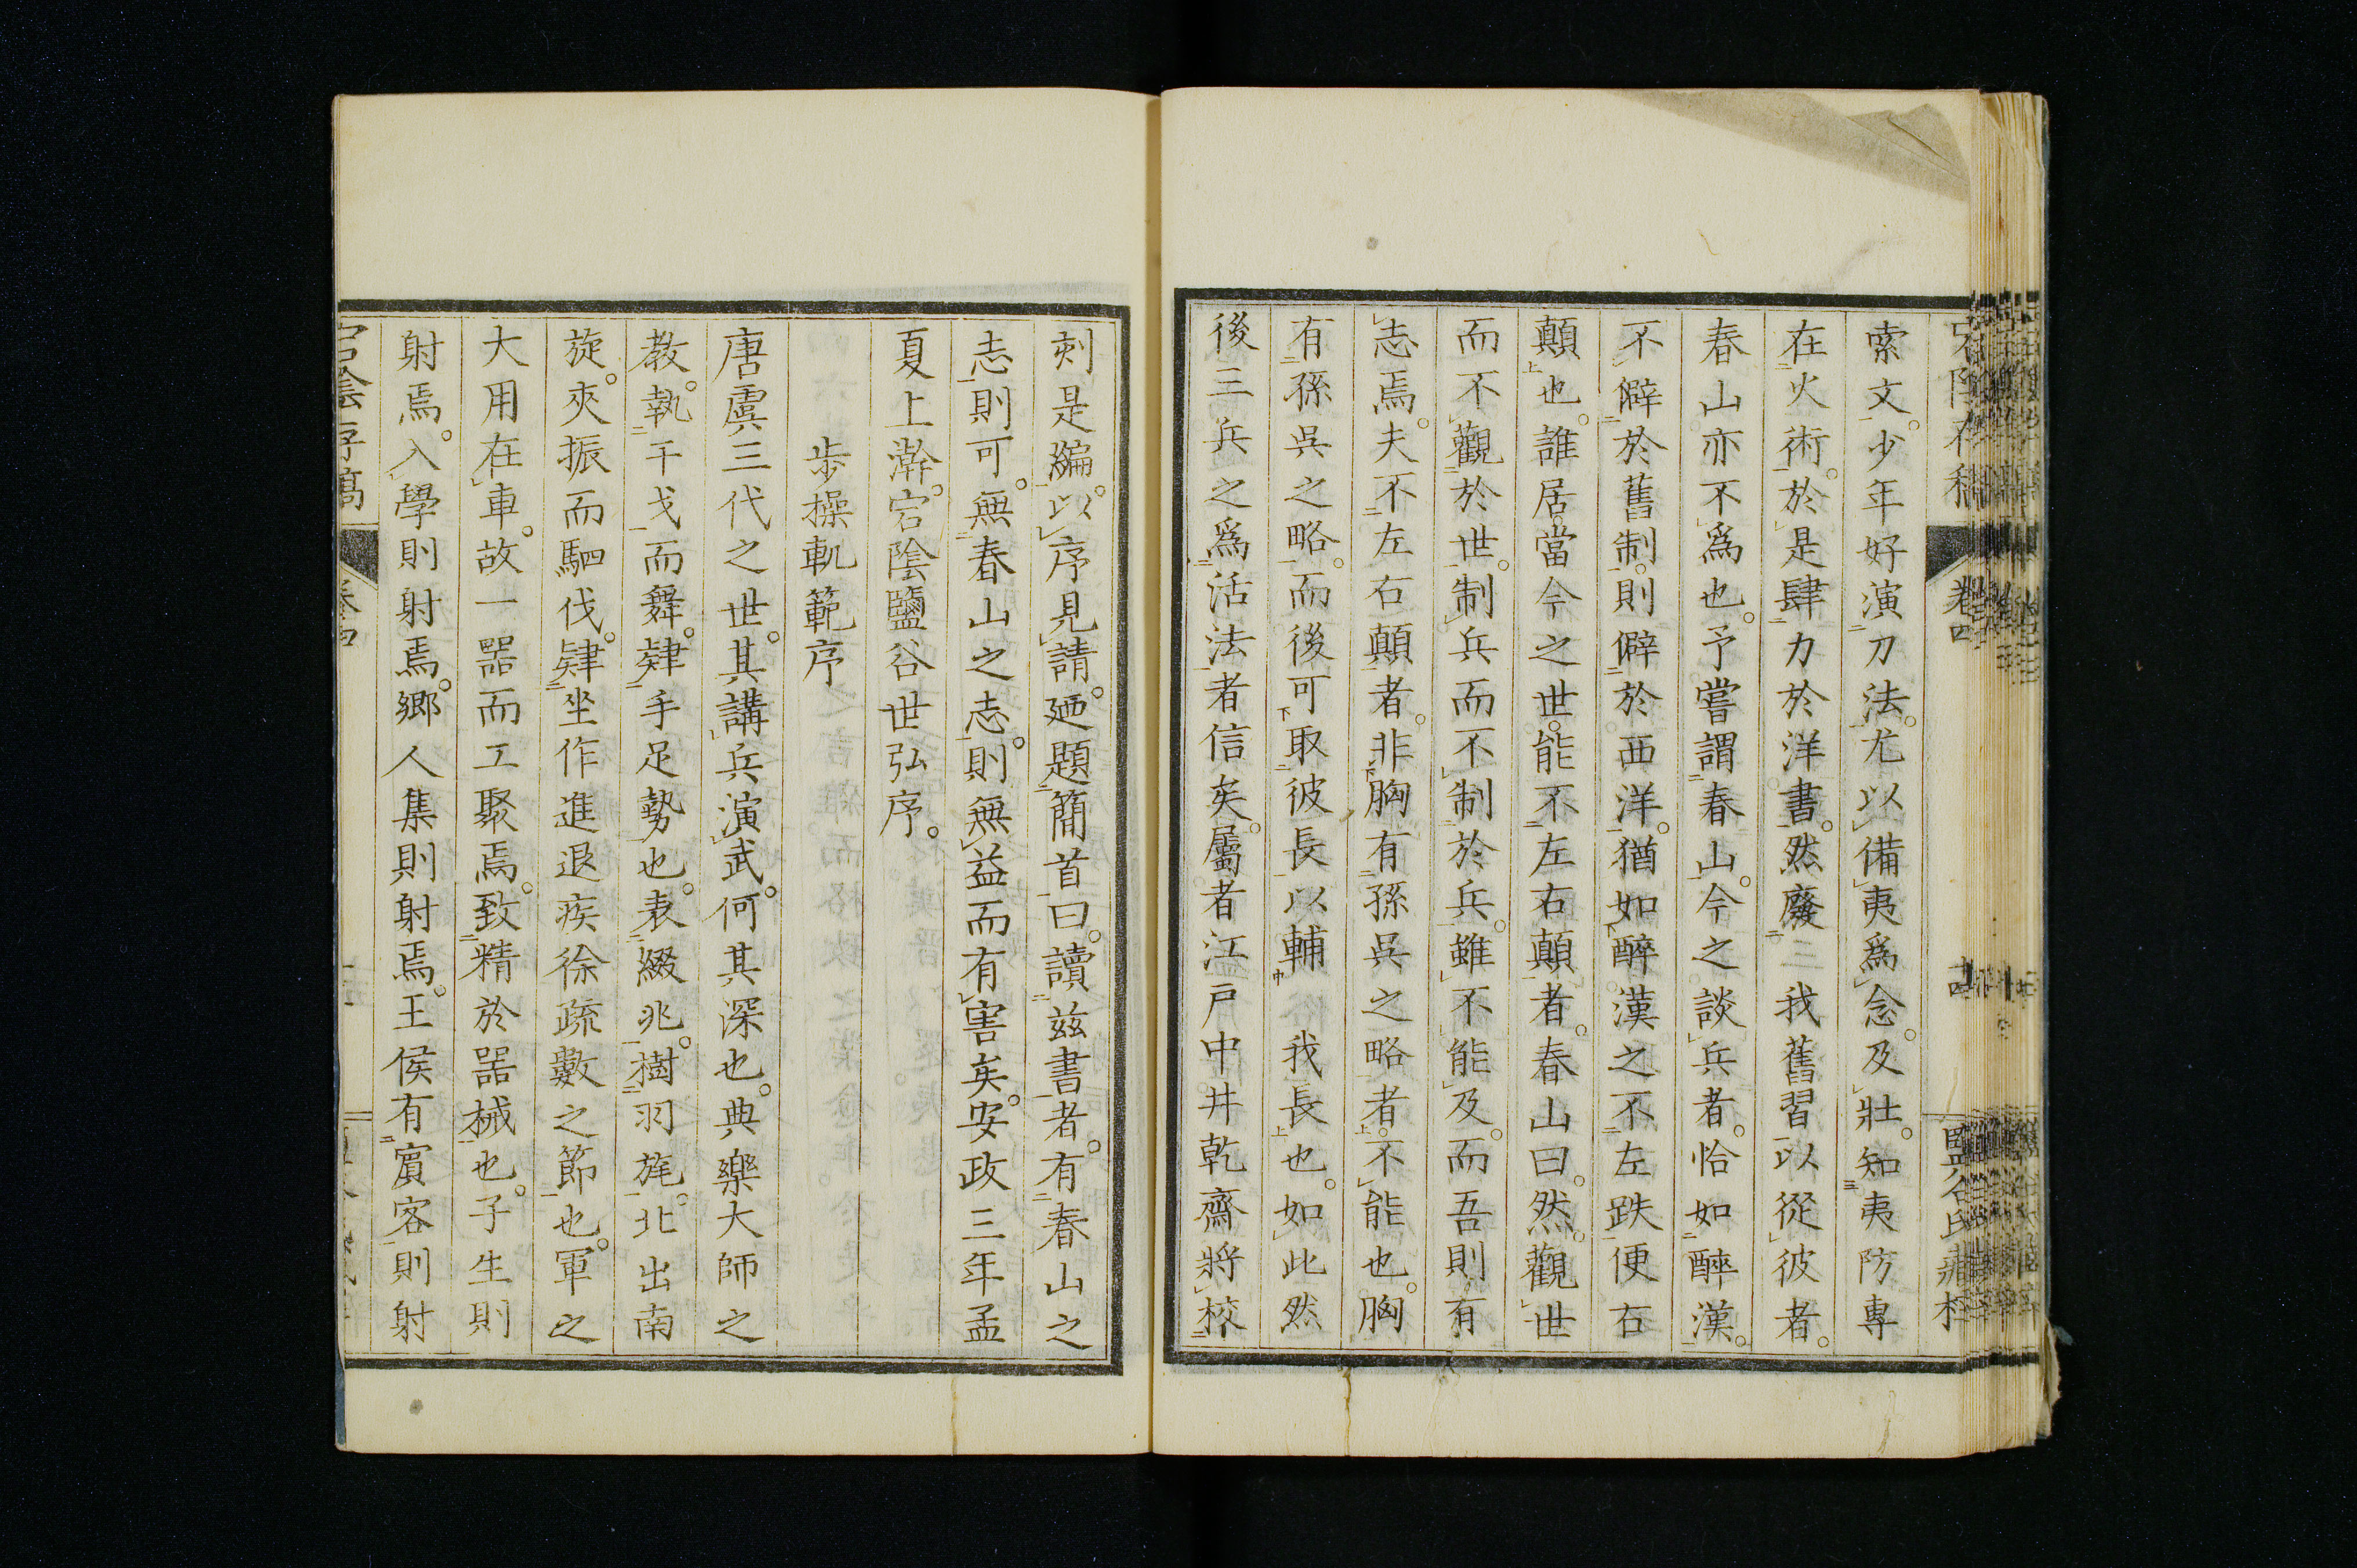 索文。少年好演刀法。尤以備夷爲念。及壯。知夷防專
在火術。於是肆力於洋書。然廢我舊習以從彼者。
春山亦不爲也。予嘗謂春山。今之談兵者。恰如醉漢。
不僻於舊制。則僻於西洋。猶如醉漢之不左跌便右
顛也。誰居當今之世。能不左右顛者。春山曰。然。觀世
而不觀於世。制兵而不制於兵。雖不能及。而吾則有
志焉。夫不左右顛者。非胸有孫吳之略者。不能也。胸
有孫吳之略。而後可取彼長以輔我長也。如此然
後三兵之爲活法者信矣。屬者江戸中井乾齋將校
刻是編。以序見請。廼題簡首曰。讀茲書者。有春山之
志則可。無春山之志。則無益而有害矣。安政三年孟
夏上澣。宕陰鹽谷世弘序。
步操軌範序
唐虞三代之世。其講兵演武。何其深也。典樂大師之
教。執干戈而舞。肄手足勢也。表綴兆。樹羽旄。北出南
旋。夾振而駟伐。肄坐作進退疾徐疏數之節也。軍之
大用在車。故一器而工聚焉。致精於器械也。子生則
射焉。入學則射焉。鄉人集則射焉。王侯有賓客則射
宕陰存稿 卷四